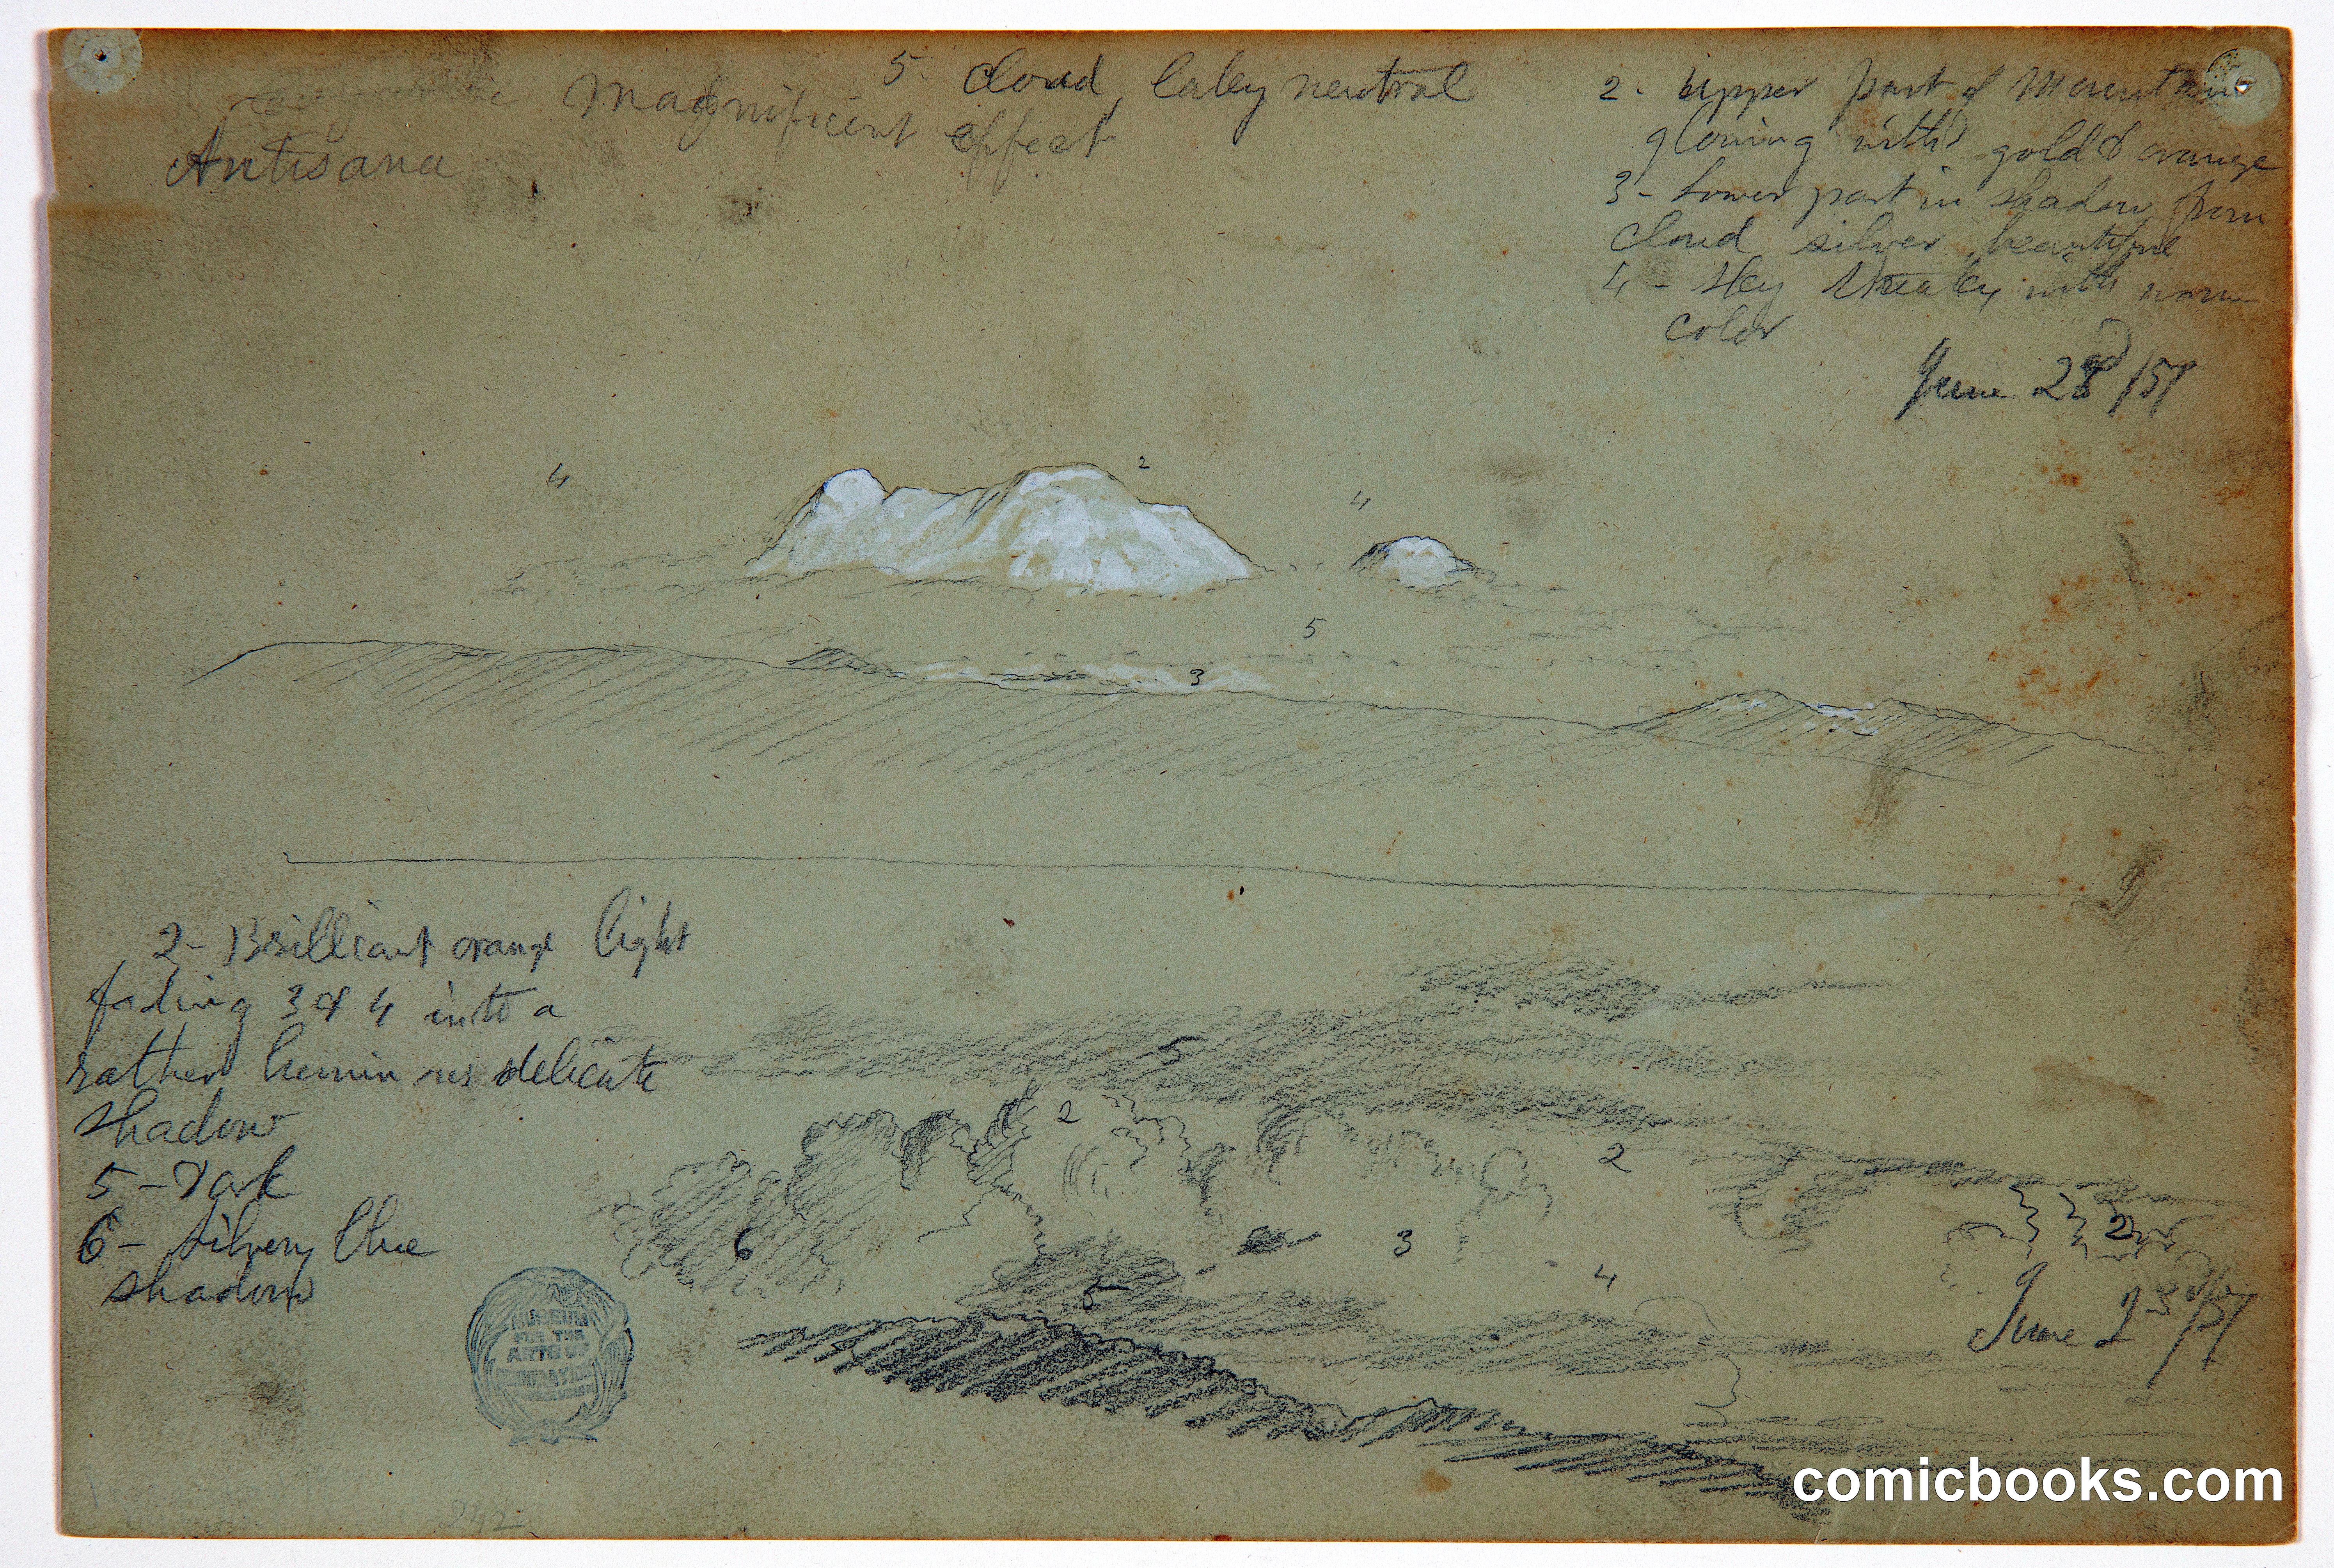 5. Cloud, lakey neutral
Magnificent effect
Antisana
2. Upper part of Mountain
glowing with gold & orange
3 - Lower part in shadow from
cloud silver, beautiful
4 - Sky streaky with warm
color
June 28 /57
4
2
4
5
3
2 - Brilliant orange light
fading 3 & 4 into a
rather luminous delicate
shadow
5 - Dark
6 - Silvery blue
shadow
5
2
2
2
6
3
4
5
June 23d/57
MUSEUM
FOR THE
ARTS OF
DECORATION
242
comicbooks.com